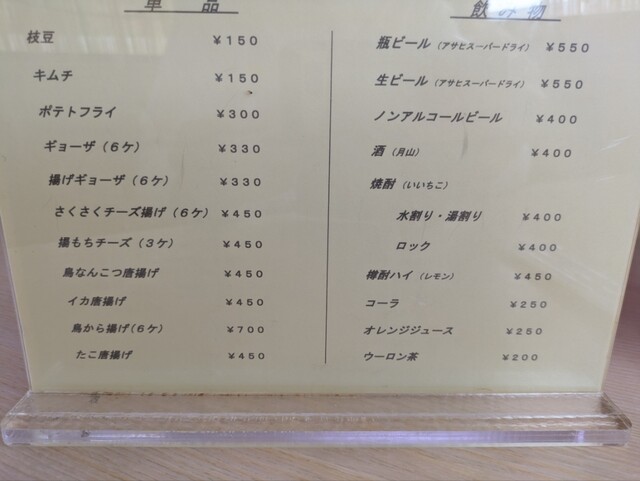 単品
枝豆 ¥150
キムチ ¥150
ポテトフライ ¥300
ギョーザ(6ケ) ¥330
揚げギョーザ(6ケ) ¥330
さくさくチーズ揚げ(6ケ) ¥450
揚もちチーズ(3ケ) ¥450
鳥なんこつ唐揚げ ¥450
イカ唐揚げ ¥450
鳥から揚げ(6ケ) ¥700
たこ唐揚げ ¥450
飲み物
瓶ビール(アサヒスーパードライ) ¥550
生ビール(アサヒスーパードライ) ¥550
ノンアルコールビール ¥400
酒(月山) ¥400
焼酎(いいちこ)
水割り・湯割り ¥400
ロック ¥400
樽酎ハイ(レモン) ¥450
コーラ ¥250
オレンジジュース ¥250
ウーロン茶 ¥200